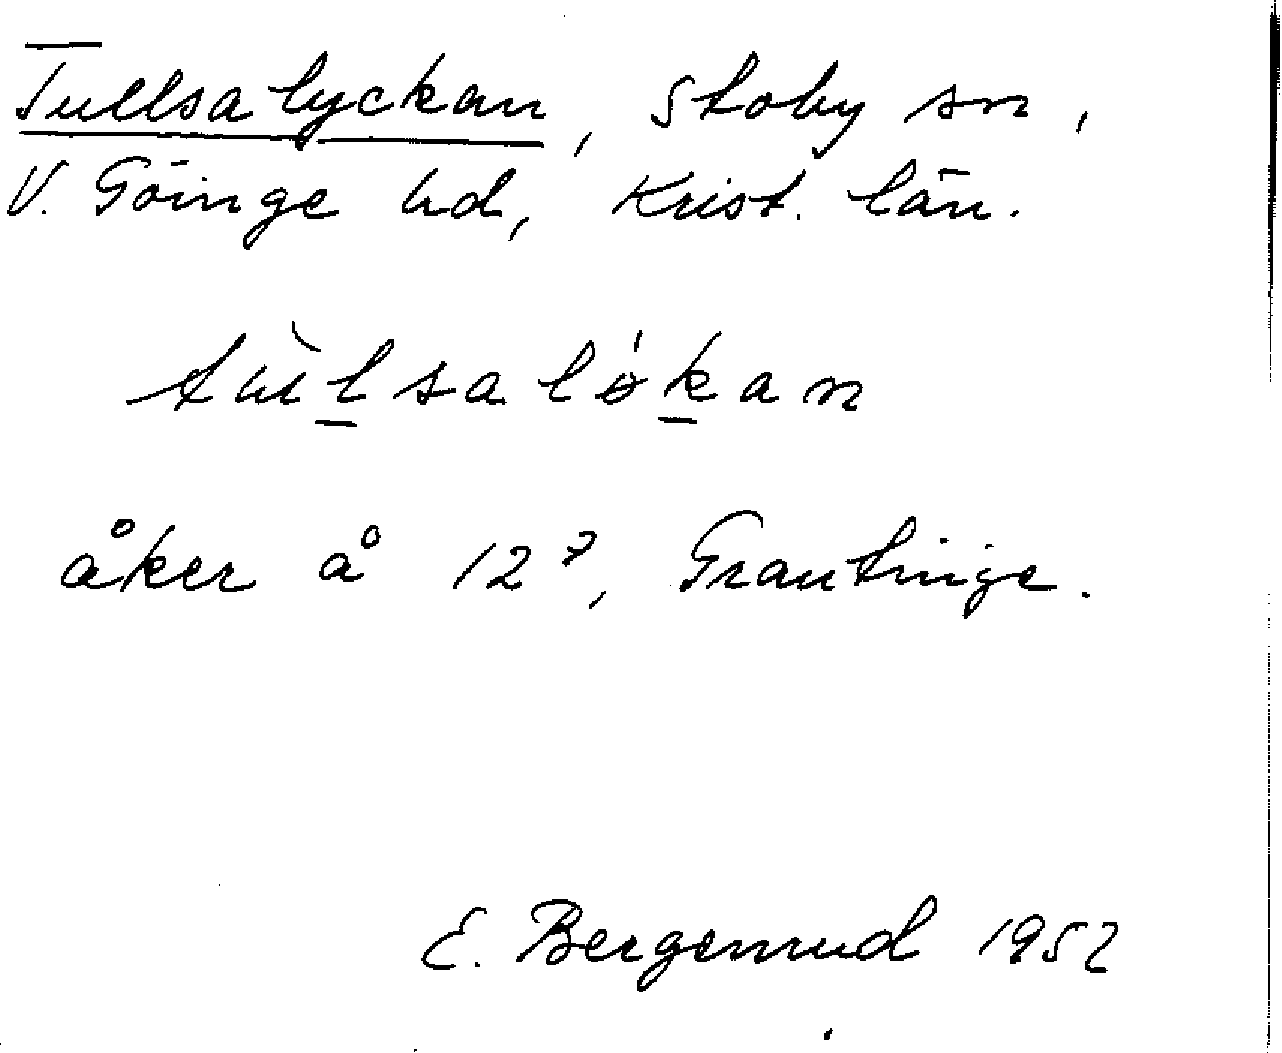 Tullsalyckan, Stoby sn,
V. Göinge hd, Krist. län.
tùl̲salók̲an
åker å 12⁷, Grantinge.
E. Bergenrud 1952